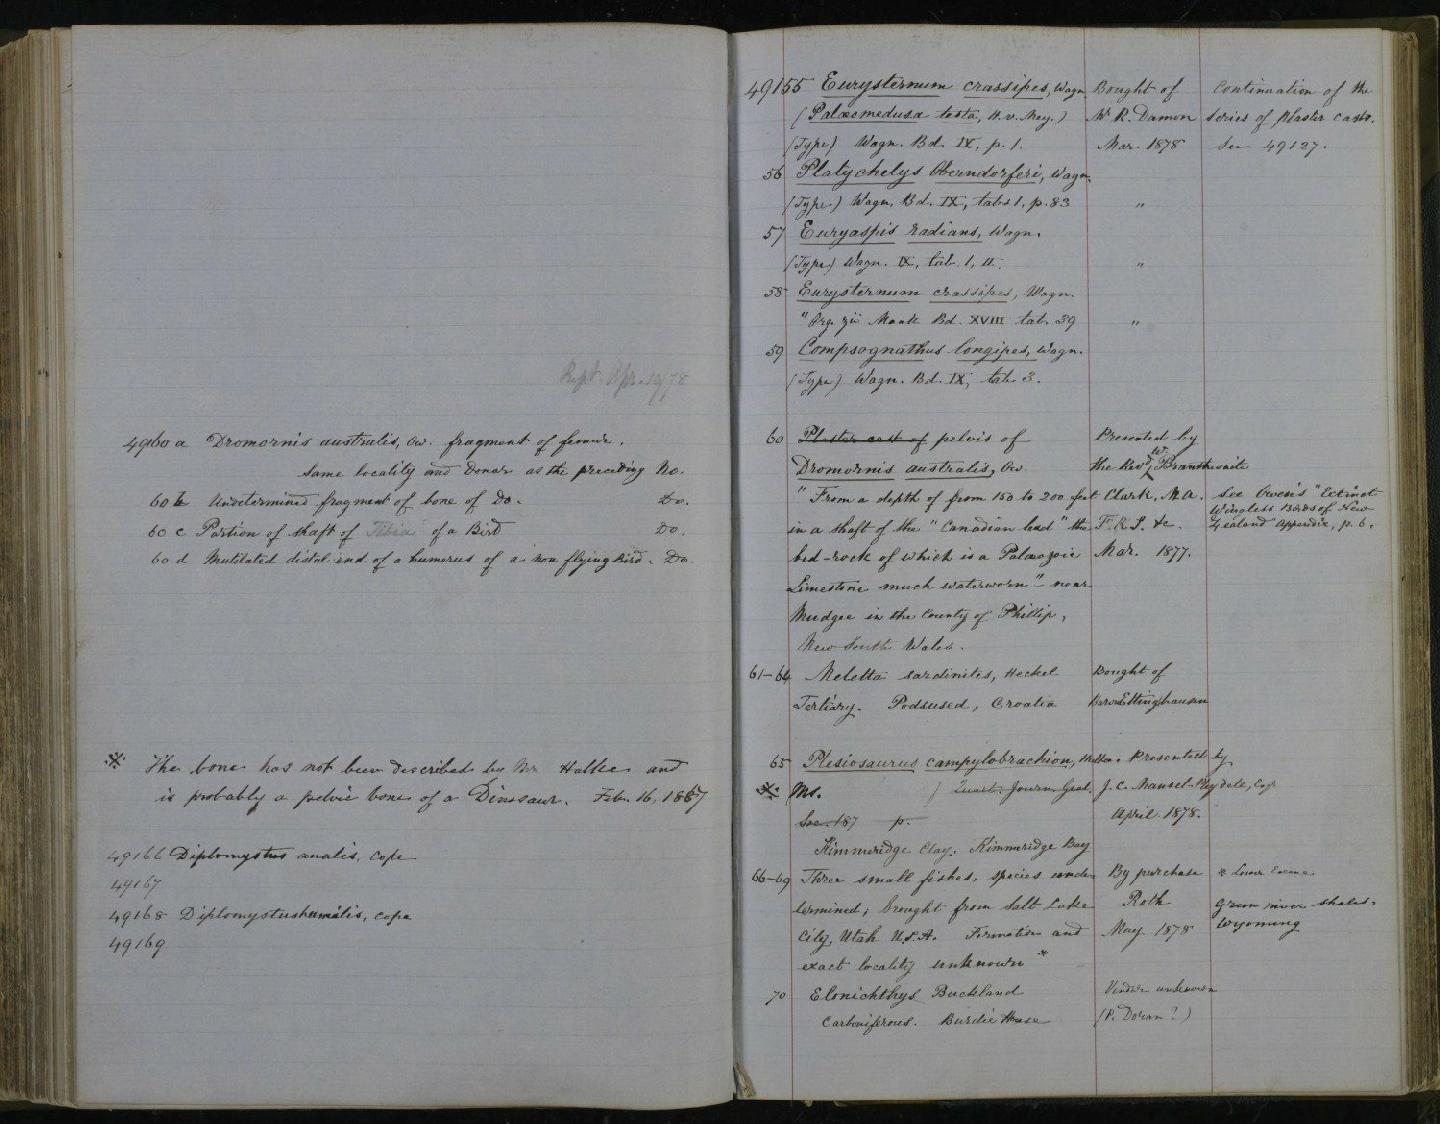 Rept. Apr. 19/78
4960 a Dromornis australis, Ow. fragment of femur.
Same locality and donor as the preceding No.
60 b Undetermined fragment of bone of Do. Do.
60 c Portion of shaft of Tibia of a Bird Do.
60 d Mutilated distal end of a humerus of a non flying Bird. Do.
※ The bone has not been described by Mr Hulke and
is probably a pelvic bone of a Dinosaur. Feb. 16, 1887
49166 Diplomystus analis, Cope
49167
49168 Diplomystus humilis, Cope
49169
49155 Eurysternum crassipes, Wagn. Bought of Continuation of the
(Palæomedusa testa, H. v. Mey.) Mr R. Damon series of Plaster Casts.
(Type) Wagn. Bd. IX, p. 1. Mar. 1878 See 49127.
56 Platychelys Oberndorferi, Wagn.
(Type) Wagn. Bd. IX, tabs 1, p. 83 "
57 Euryaspis radians, Wagn.
(Type) Wagn. IX, tab. 1, II. "
58 Eurysternum crassipes, Wagn.
Bd. XVIII tab. 39 "
59 Compsognathus longipes, Wagn.
(Type) Wagn. Bd. IX, tab 3.
60 Plaster cast of pelvis of Presented by
Dromornis australis, Ow the Revd W. Branthwaite
"From a depth of from 150 to 200 feet Clark, M.A. See Owen's "Extinct
in a shaft of the "Canadian lead" the F.R.S. &c. Wingless Birds of New
bed-rock of which is a Palæozoic Mar. 1877. Zealand Appendix, p. 6.
Limestone much waterworn" near
Mudgee in the County of Phillip,
New South Wales.
61-64 Meletta sardinites, Heckel Bought of
Tertiary. Podsused, Croatia Baron Ettinghausen
65 Plesiosaurus campylobrachion, Presented by
※ Ms. Quart. Journ. Geol. J. C. Mansel-Pleydell, Esq
Soc. 187 p. April 1878.
Kimmeridge Clay. Kimmeridge Bay
66-69 Three small fishes, species unde- By purchase * Lower Eocene
termined; brought from Salt Lake Roth Green river shales.
City, Utah U.S.A. Formation and May 1878 Wyoming
exact locality unknown *
70 Elonichthys Buckland Vendor unknown
Carboniferous. Burdie House (P. Doran?)